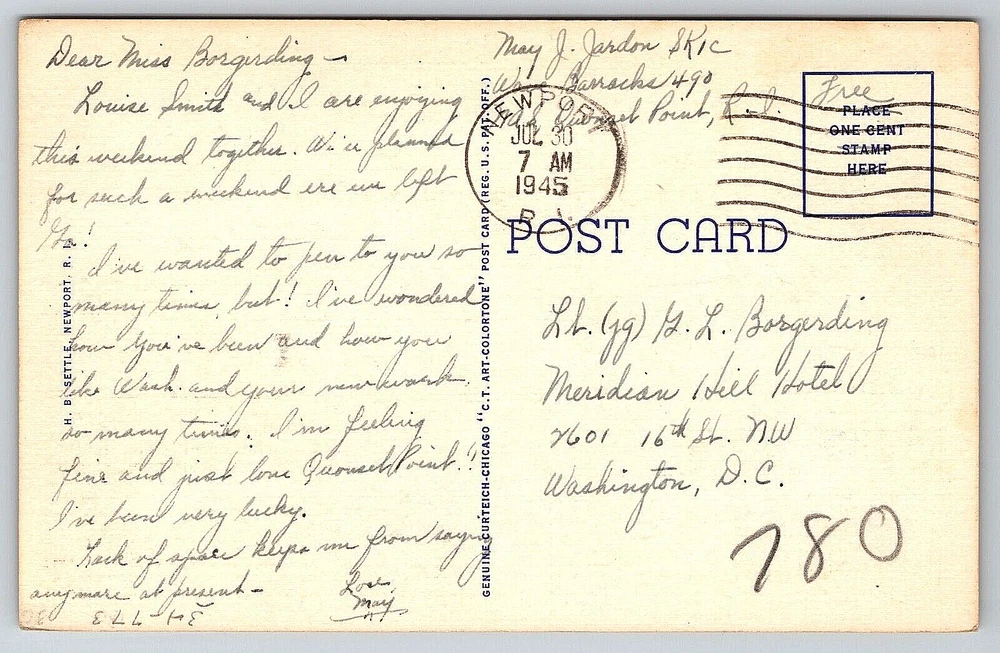 Dear Miss Borgerding —
Louise Smith and I are enjoying
this weekend together. We'er planned
for such a weekend ere we left
Ga!
I've wanted to pen to you so
many times, but! I've wondered
how you've been and how you
like Wash. and your new work.
so many times. I'm feeling
fine and just love Quonset Point!!
I've been very lucky.
Lack of space keeps me from saying
anymore at present —
Love,
May
34-773
H. B. SETTLE, NEWPORT, R. I.
GENUINE CURTEICH-CHICAGO "C. T. ART-COLORTONE" POST CARD (REG. U. S. PAT. OFF.)
May J. Jardon SK1c
Wave Barracks 490
Quonset Point, R.I.
NEWPORT
JUL 30
7 AM
1945
R. I.
Free
PLACE
ONE CENT
STAMP
HERE
POST CARD
Lt. (jg) G. L. Borgerding
Meridian Hill Hotel
2601 16th St. NW
Washington, D.C.
780